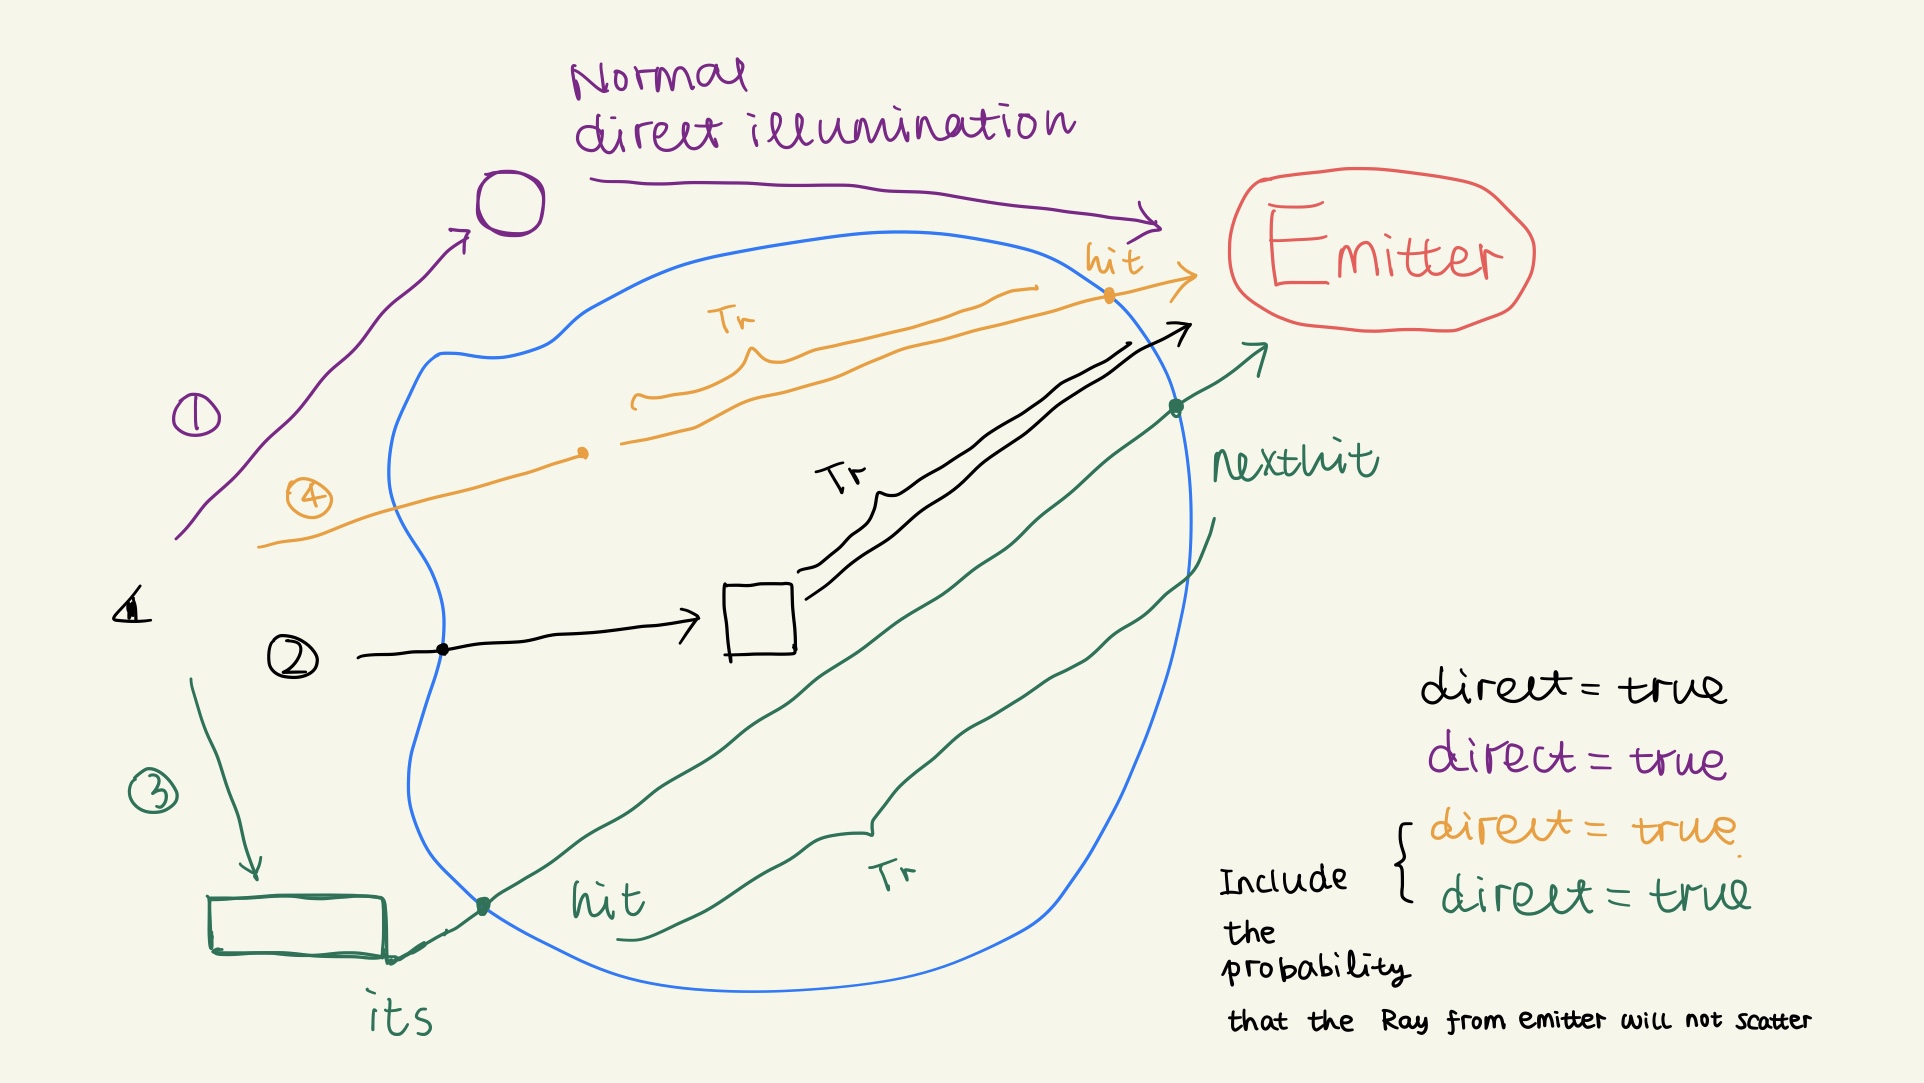 Normal
direct illumination
Emitter
hit
Tr
①
④
Tr
nexthit
②
③
hit
Tr
its
direct = true
direct = true
direct = true
direct = true
Include
the
probability
that the Ray from emitter will not scatter